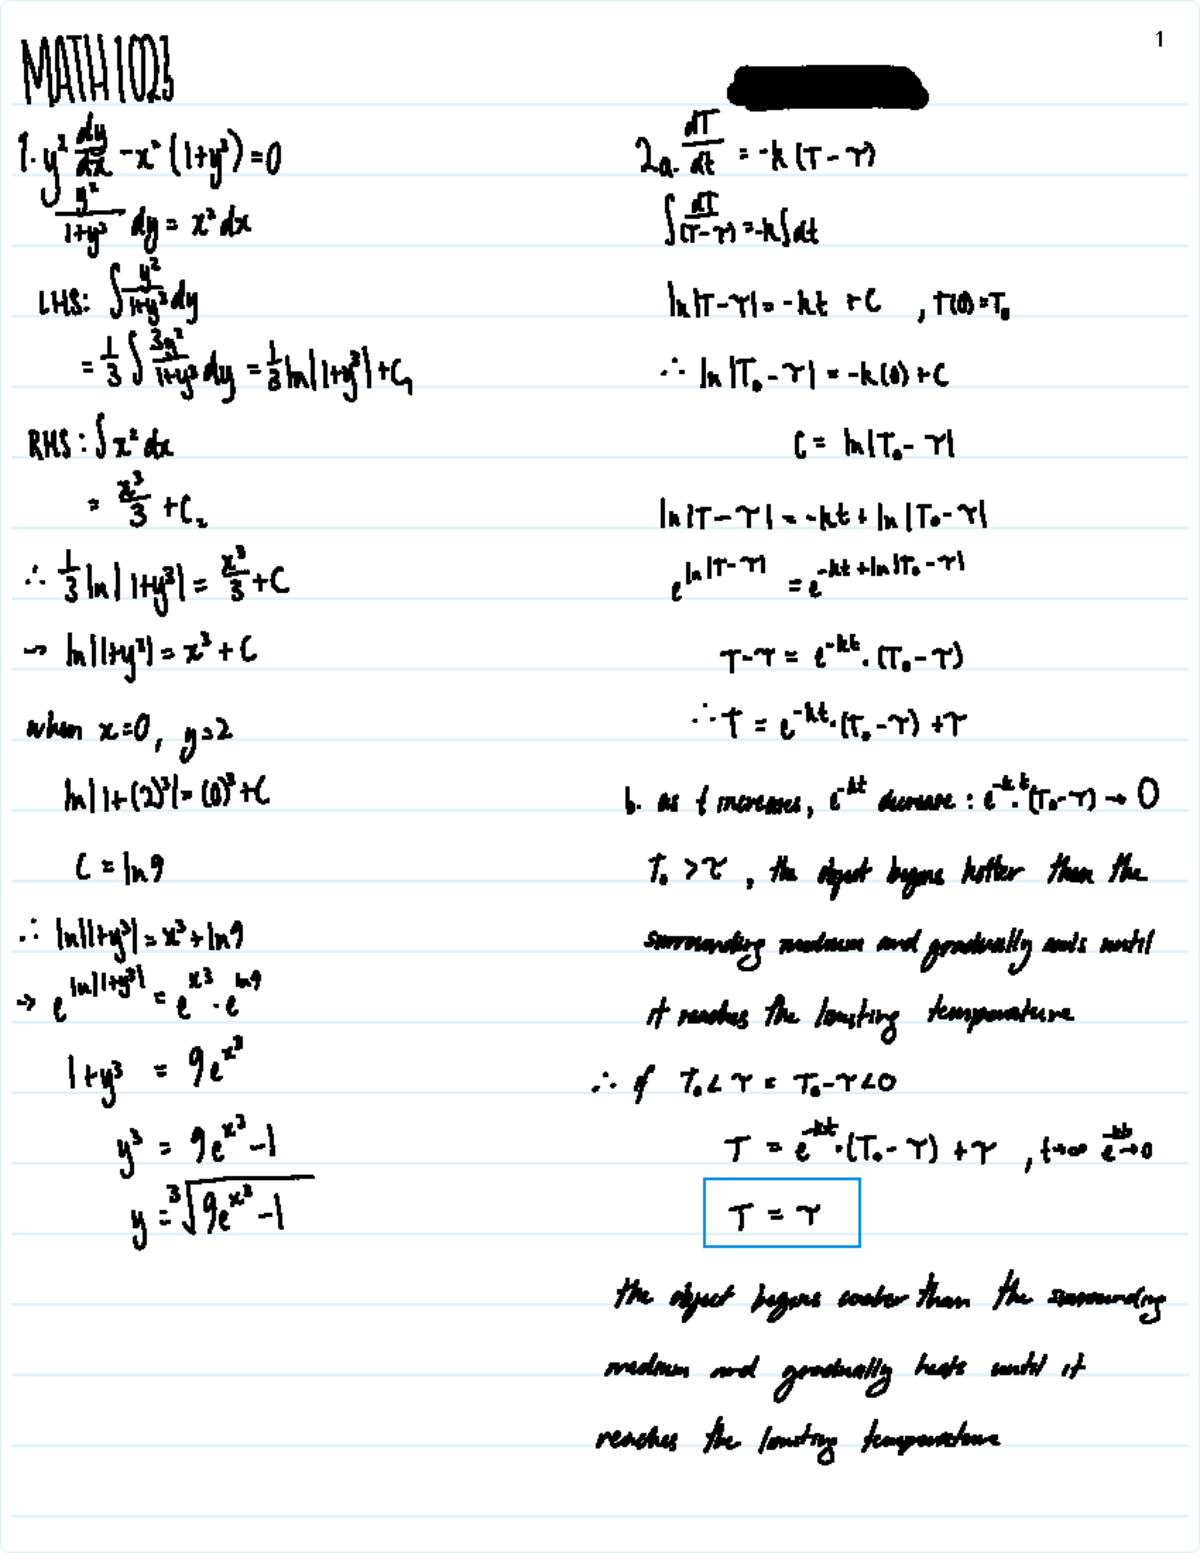 1
MATH1023
1. y² dy/dx - x² (1+y³) = 0
y²/(1+y³) dy = x² dx
LHS: ∫ y²/(1+y³) dy
= 1/3 ∫ 3y²/(1+y³) dy = 1/3 ln|1+y³| + C₁
RHS: ∫ x² dx
= x³/3 + C₂
∴ 1/3 ln|1+y³| = x³/3 + C
→ ln|1+y³| = x³ + C
when x=0, y=2
ln|1+(2)³| = (0)³ + C
C = ln9
∴ ln|1+y³| = x³ + ln9
→ e^(ln|1+y³|) = e^(x³) · e^(ln9)
1+y³ = 9e^(x³)
y³ = 9e^(x³) - 1
y = ³√(9e^(x³) - 1)
2a. dT/dt = -k (T - τ)
∫ dT/(T-τ) = -k ∫ dt
ln|T-τ| = -kt + C , T(0) = T₀
∴ ln|T₀-τ| = -k(0) + C
C = ln|T₀-τ|
ln|T-τ| = -kt + ln|T₀-τ|
e^(ln|T-τ|) = e^(-kt+ln|T₀-τ|)
T-τ = e^(-kt) · (T₀-τ)
∴ T = e^(-kt) · (T₀-τ) + τ
b. as t increases, e^(-kt) decrease : e^(-kt) · (T₀-τ) → 0
T₀ > τ , the object begins hotter than the
surrounding medium and gradually cools until
it reaches the limiting temperature
∴ if T₀ < τ = T₀-τ < 0
T = e^(-kt) · (T₀-τ) + τ , t→∞ e^(-kt)→0
T = τ
the object begins cooler than the surrounding
medium and gradually heats until it
reaches the limiting temperature